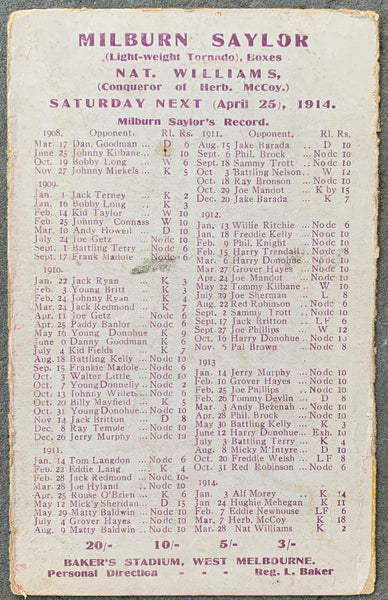 MILBURN SAYLOR
(Light-weight Tornado), Boxes
NAT. WILLIAMS,
(Conqueror of Herb. McCoy.)
SATURDAY NEXT (April 25), 1914.
Milburn Saylor's Record.
1908. Opponent. Rl. Rs.
Mar. 17 Dan. Goodman D 6
June 25 Johnny Kilbane L 10
Oct. 19 Bobby Long W 6
Nov 27 Johnny Mickels K 5
1909.
Jan. 1 Jack Terney K 2
Jan. 16 Bobby Long K 3
Feb. 14 Kid Taylor W 10
Feb. 25 Johnny Connass W 10
Mar. 10 Andy Howell D 10
July 24 Joe Getz Nodc 10
Sept. 1 Battling Terry Nodc 6
Sept. 17 Frank Madole Nodc 6
1910.
Jan. 22 Jack Ryan K 3
Feb. 3 Young Britt K 3
Feb. 24 Johnny Ryan K 4
Mar. 24 Jack Redmond K 7
Apr. 11 Joe Getz Nodc 6
Apr. 25 Paddy Banlor Nodc 6
May 16 Young Donohue K 9
June 0 Danny Goodman K 6
July 4 Kid Fields K 7
Aug. 18 Battling Kelly Nodc 10
Sep. 15 Frankie Madole Nodc 6
Oct. 3 Walter Little Nodc 10
Oct. 7 Young Donnelly Nodc 2
Oct. 13 Johnny Wilets Nodc 6
Oct. 20 Billy Mayfield K 5
Oct. 31 Young Donohue Nodc 10
Nov. 14 Jack Britton D 8
Dec. 8 Ray Temple Nodc 10
Dec. 26 Jerry Murphy Nodc 10
1911.
Jan. 14 Tom Langdon Nodc 6
Feb. 22 Eddie Lang K 4
Feb. 28 Jack Redmond Nodc 10
Mar. 28 Joe Hyland Nodc 6
Apr. 25 Rouse O'Brien K 6
May 12 Mick'y Sheridan D 15
May 29 Matty Baldwin Nodc 10
July 4 Grover Hayes Nodc 10
Aug. 9 Matty Baldwin Nodc 10
1911. Opponent. Rl. Rs.
Aug. 15 Jake Barada D 10
Sept. 6 Phil. Brock Nodc 10
Sept. 19 Sammy Trott Nodc 10
Oct. 3 Battling Nelson W 12
Oct. 18 Ray Bronson Nodc 10
Oct. 29 Joe Mandot K by 15
Dec. 20 Jake Barada K 7
1912.
Jan. 13 Willie Ritchie Nodc 6
Jan. 18 Freddie Kelly Nodc 10
Feb. 9 Phil. Knight Nodc 10
Feb. 15 Harry Trendall Nodc 10
Mar. 6 Harry Donohue Nodc 10
Mar. 27 Grover Hayes Nodc 10
Apr. 24 Joe Mandot Nodc 10
May 22 Tommy Kilbane W 10
July 29 Joe Sherman L 8
Aug. 22 Red Robinson Nodc 6
Sept. 2 Sammy Trott Nodc 10
Sept. 17 Jack Britton LF 6
Sept 27 Joe Phillips W 12
Oct. 16 Harry Donohue Nodc 10
Nov. 5 Pal Brown Nodc 10
1913
Jan. 14 Jerry Murphy Nodc 10
Feb. 10 Grover Hayes Nodc 10
Feb. 25 Joe Phillips Nodc 10
Feb. 26 Tommy Devlin D 8
Mar. 3 Andy Bezenah Nodc 10
Apr. 28 Phil. Brock Nodc 10
May 30 Battling Kelly K 3
June 11 Harry Donohue Exb. 10
July 3 Battling Terry K 4
Aug. 8 Micky McIntyre D 10
Oct. 20 Freddie Welsh LF 8
Oct. 31 Red Robinson Nodc 6
1914.
Jan. 3 Alf Morey K 14
Jan. 24 Hughie Mehegan K 11
Feb. 7 Eddie Newhouse LF 6
Mar. 7 Herb. McCoy K 18
Mar. 28 Nat Williams K 2
20/- 10/- 5/- 3/-
BAKER'S STADIUM, WEST MELBOURNE.
Personal Direction - - - Reg. L. Baker